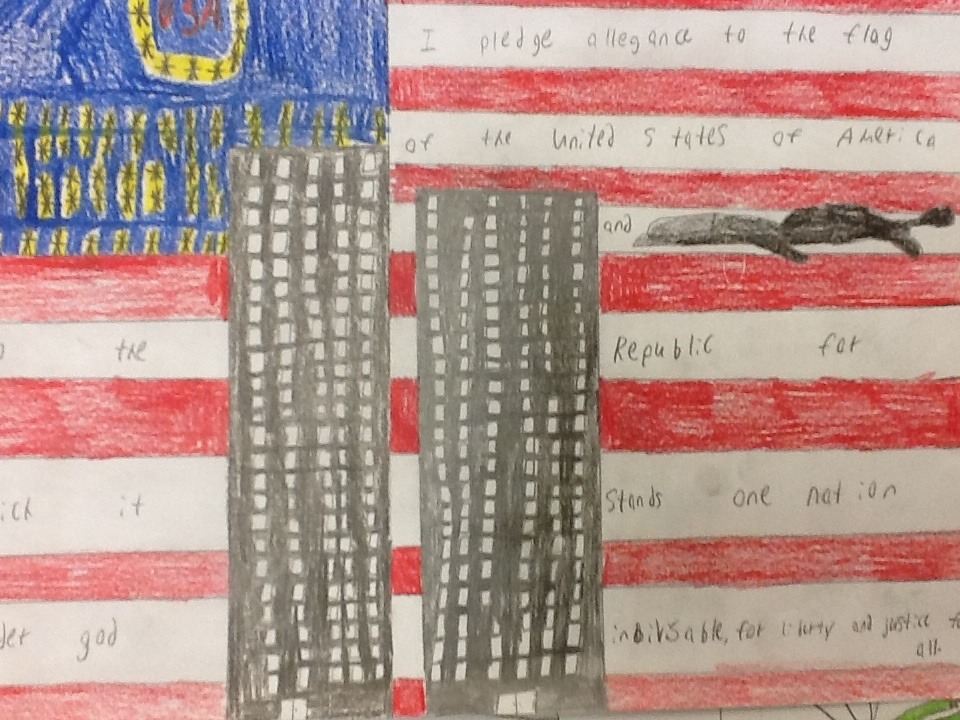 USA
I pledge allegance to the flag
of the United States of America
and
the Republic for
it Stands one nation
god indivisable, for liberty and justice
all.